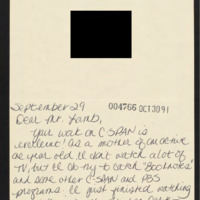 September 29 004766 OCT 30 91
Dear Mr. Lamb,
Your work on C-SPAN is
excellent! As a mother of an active
year old I don't watch a lot of
TV, but I do try to catch "Booknotes"
and some other C-SPAN and PBS
programs. I just finished watching